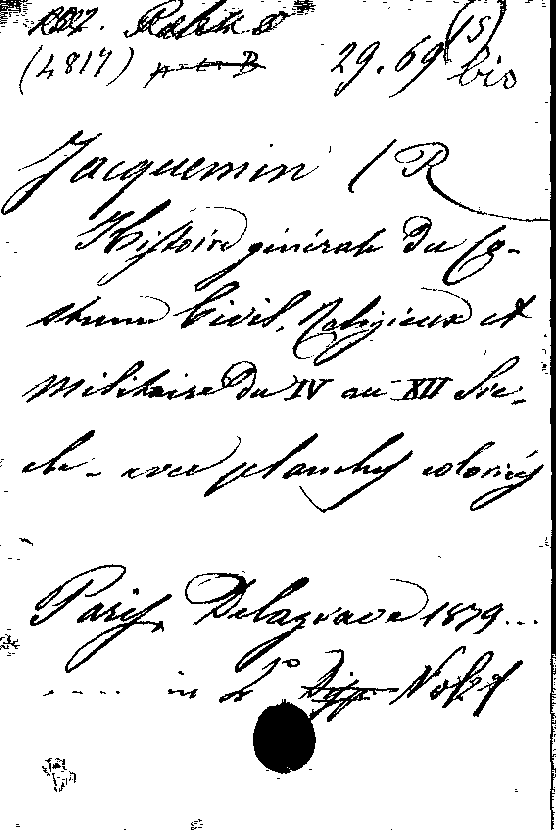 (4817) 29.69 bis
(5)
Jacquemin (R
Histoire générale du Co-
stume Civil, Religieux et
Militaire du IV au XII Siè-
cle - avec planches coloriées
Paris, Delagrave 1879...
..... in 4° Vol 1